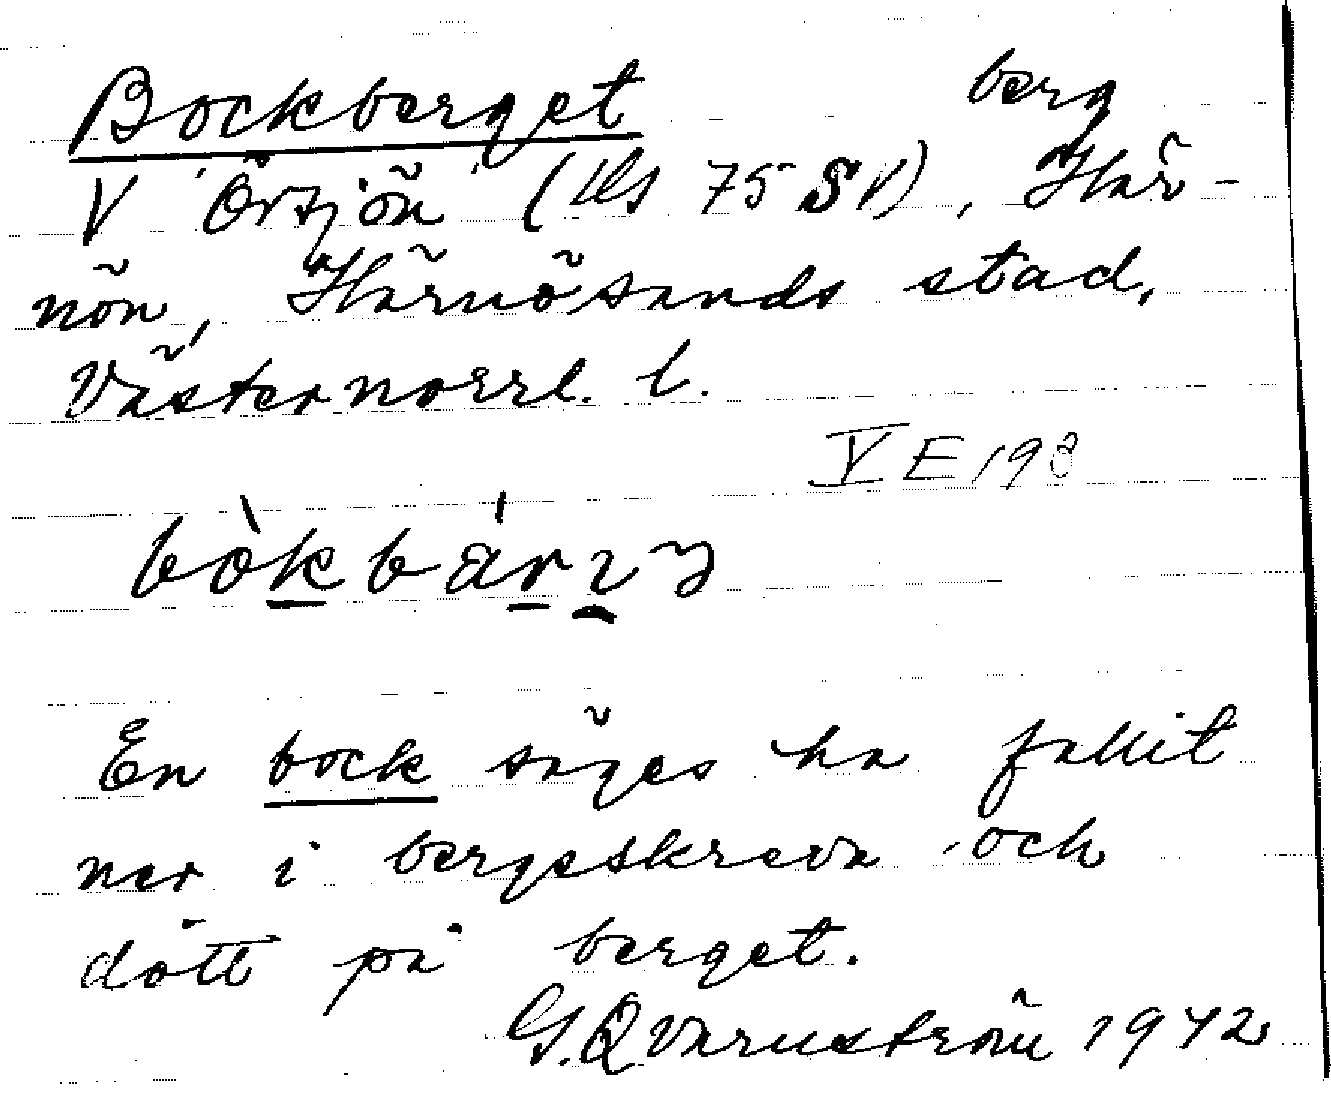 Bockberget berg
V Örsjön (Hs 75 SV), Här-
nön, Härnösands stad,
Västernorrl. l.
V E 198
bòkbárı
En bock säges ha fallit
ner i bergsskreva och
dött på berget.
G. Qvarnström 1942